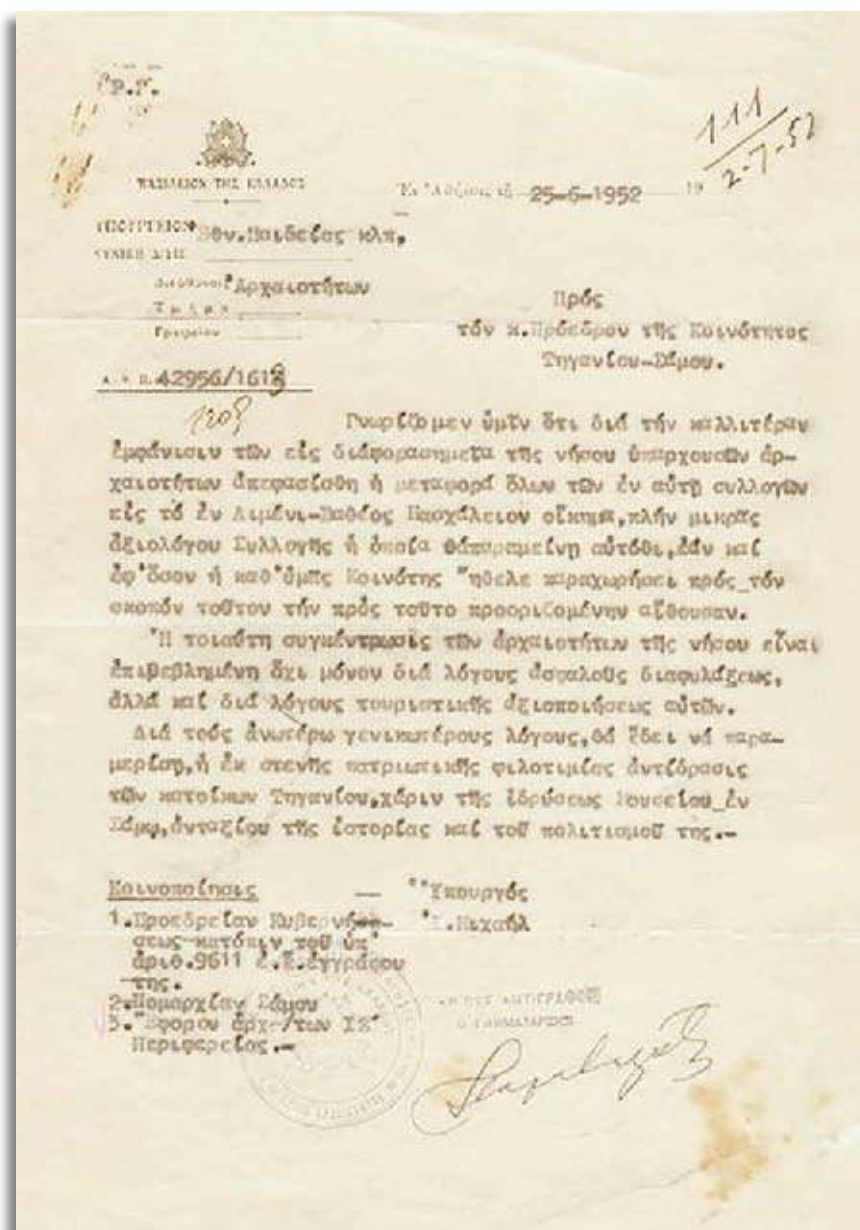 Ρ.Γ.
111
2-7-52
ΒΑΣΙΛΕΙΟΝ ΤΗΣ ΕΛΛΑΔΟΣ
Ἐν Ἀθήναις τῇ 25-6-1952 19
ΥΠΟΥΡΓΕΙΟΝ Ἐθν.Παιδείας κλπ.
Διεύθυνσις Ἀρχαιοτήτων
Τμῆμα
Γραφεῖον
Πρός
τόν κ.Πρόεδρον τῆς Κοινότητος
Τηγανίου-Σάμου.
Α.Π. 42956/1618
Γνωρίζομεν ὑμῖν ὅτι διά τήν καλλιτέραν
ἐμφάνισιν τῶν εἰς διάφορασημεῖα τῆς νήσου ὑπαρχουσῶν ἀρ-
χαιοτήτων ἀπεφασίσθη ἡ μεταφορά ὅλων τῶν ἐν αὐτῇ συλλογῶν
εἰς τό ἐν Λιμένι-Βαθέος Πασχάλειον οἴκημα,πλήν μικρᾶς
ἀξιολόγου Συλλογῆς ἡ ὁποία θάπαραμείνῃ αὐτόθι,ἐάν καί
ἐφ'ὅσον ἡ καθ'ὑμᾶς Κοινότης ἤθελε παραχωρήσει πρός τόν
σκοπόν τοῦτον τήν πρός τοῦτο προοριζομένην αἴθουσαν.
Ἡ τοιαύτη συγκέντρωσις τῶν ἀρχαιοτήτων τῆς νήσου εἶναι
ἐπιβεβλημένη ὄχι μόνον διά λόγους ἀσφαλοῦς διαφυλάξεως,
ἀλλά καί διά λόγους τουριστικῆς ἀξιοποιήσεως αὐτῶν.
Διά τούς ἀνωτέρω γενικωτέρους λόγους,θά ἔδει νά παρα-
μερίσῃ,ἡ ἐκ στενῆς πατριωτικῆς φιλοτιμίας ἀντίδρασις
τῶν κατοίκων Τηγανίου,χάριν τῆς ἱδρύσεως Μουσείου ἐν
Σάμῳ,ἀνταξίου τῆς ἱστορίας καί τοῦ πολιτισμοῦ της.-
Κοινοποίησις
Ὑπουργός
1.Προεδρείαν Κυβερνή-
Ι.Μιχαήλ
σεως κατόπιν τοῦ ὑπ'
ἀριθ.9611 ἐ.ἔ.ἐγγράφου
της.
2.Νομαρχίαν Σάμου
3.Ἔφορον ἀρχ/των ΙΣ'
Περιφερείας.-
ΑΝΤΙΓΡΑΦΟΝ
Ο ΓΡΑΜΜΑΤΑΡΧΗΣ